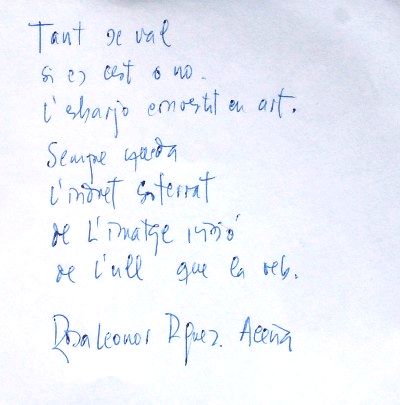 Tant se val
si es cert o no.
L'esbarjo envestit en art.
Sempre queda
l'indret soterrat
de l'imatge i
de l'ull que la veu.
Rosaleonor Rguez. Aceña